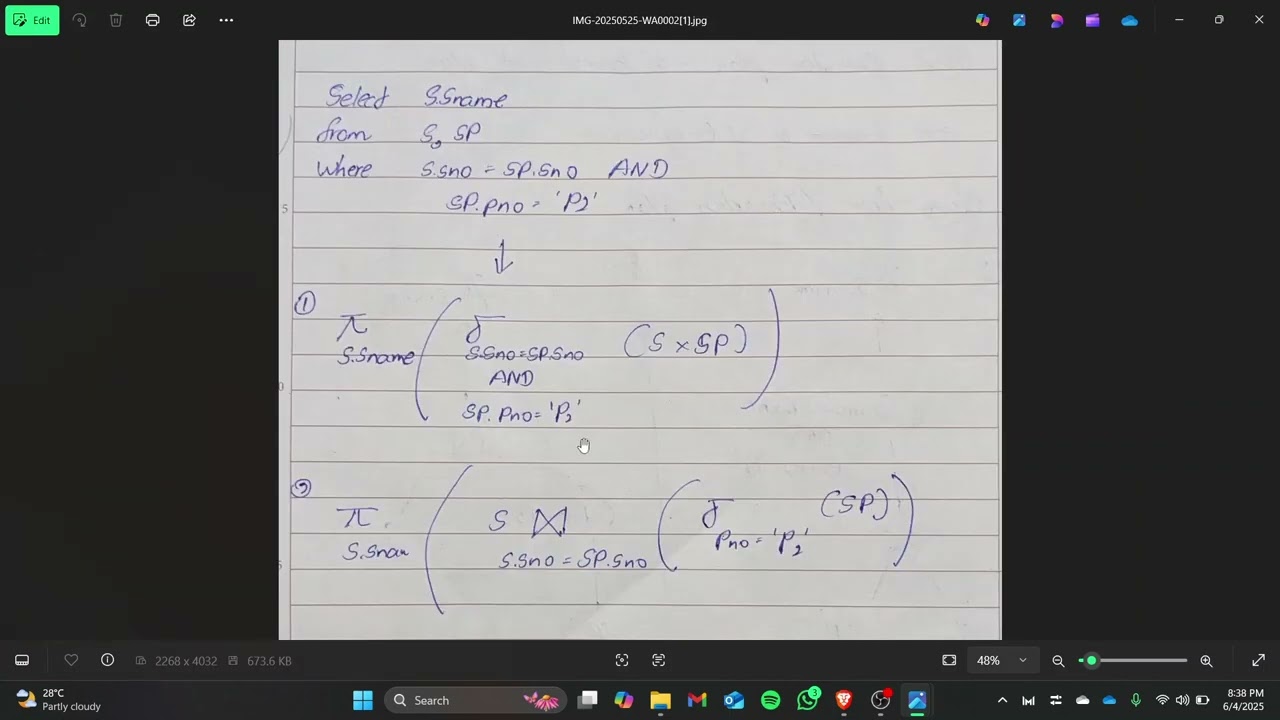 Edit
IMG-20250525-WA0002[1].jpg
Select S.Sname
from S, SP
Where S.sno = SP.Sno AND
SP.pno = 'P2'
↓
5
①
π S.Sname ( σ S.Sno=SP.Sno (S × SP) )
AND
0
SP.Pno='P2'
②
π S.Snam ( S ⋈ S.Sno = SP.Sno ( σ Pno = 'P2' (SP) )
5
2268 x 4032 673.6 KB 48%
28°C
Partly cloudy
Search
3
8:38 PM
6/4/2025